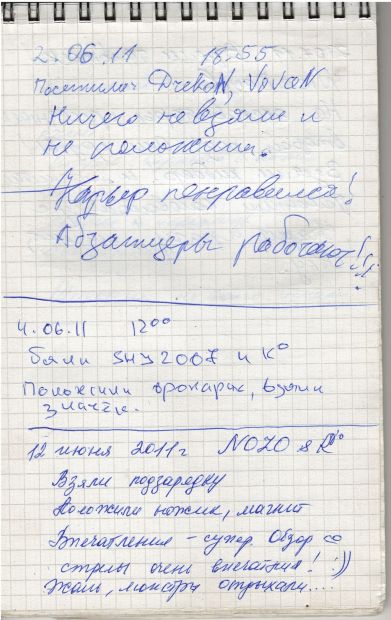 2.06.11 18:55
Посетили: DreKoN, VoVaN
Ничего не взяли и
не положили.
Карьер понравился!
Абзатцеры работают!!!
4.06.11 12⁰⁰
Были SHS2007 и К⁰
Положили фонарик, взяли
значек.
12 июня 2011г NOZO &
Взяли подзарядку
Положили ножик, магнит
Впечатления - супер. Обзор со
стрелы очень впечатлил! :))
Жаль, монстры отдыхали....